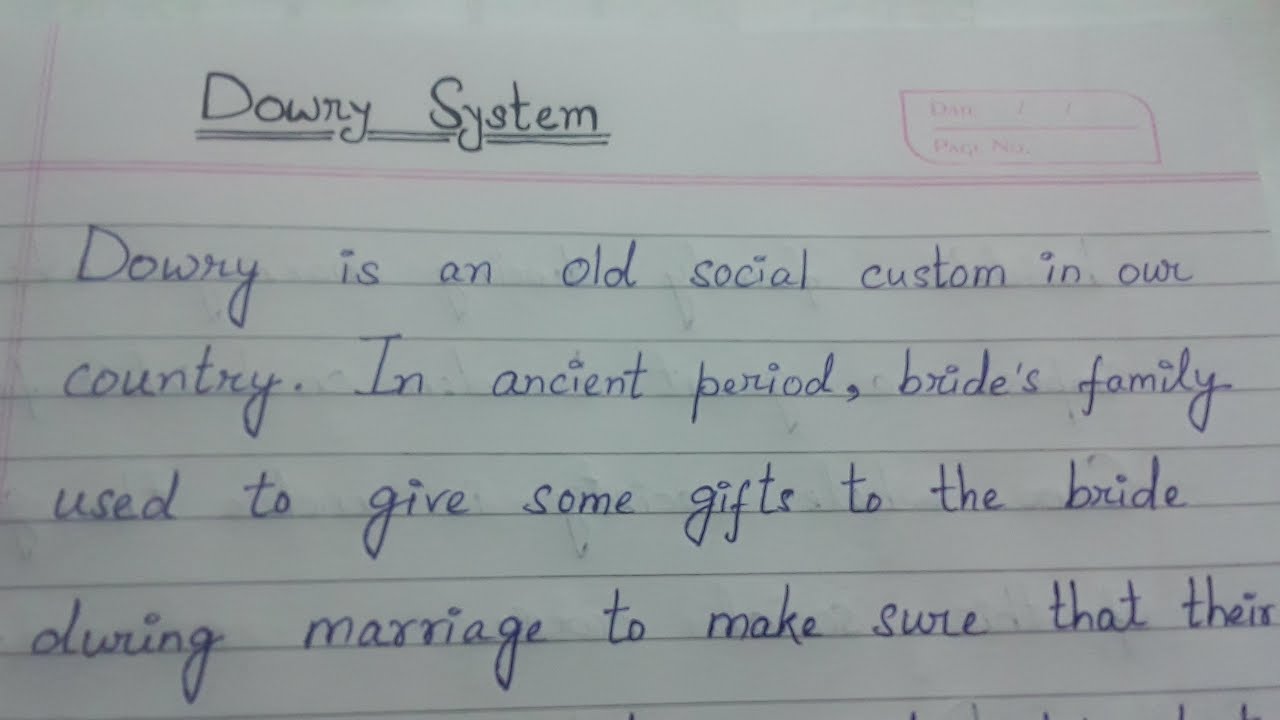 Dowry System
Date / /
Page No.
Dowry is an old social custom in our
country. In ancient period, bride's family
used to give some gifts to the bride
during marriage to make sure that their